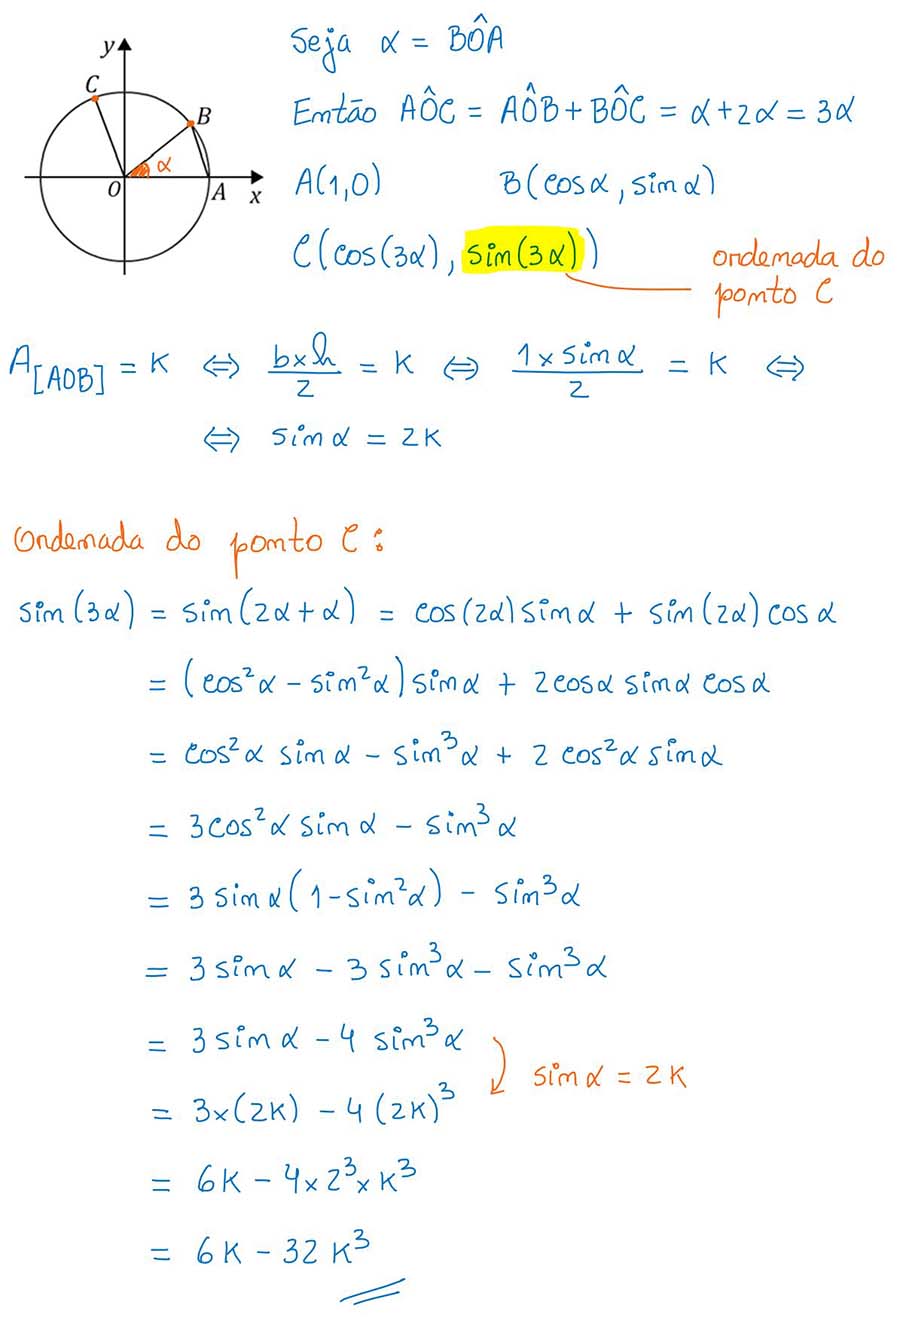 y
C
B
α
O
A
x
Seja α = BÔA
Então AÔC = AÔB + BÔC = α + 2α = 3α
A(1,0) B(cosα, sinα)
C(cos(3α), sin(3α))
ordenada do
ponto C
A[AOB] = K ⇔ b×h/2 = K ⇔ 1×sinα/2 = K ⇔
⇔ sinα = 2K
Ordenada do ponto C:
sin(3α) = sin(2α+α) = cos(2α)sinα + sin(2α)cosα
= (cos²α − sin²α)sinα + 2cosα sinα cosα
= cos²α sinα − sin³α + 2 cos²α sinα
= 3cos²α sinα − sin³α
= 3 sinα(1−sin²α) − sin³α
= 3 sinα − 3 sin³α − sin³α
= 3 sinα − 4 sin³α
sinα = 2K
= 3×(2K) − 4(2K)³
= 6K − 4×2³×K³
= 6K − 32K³